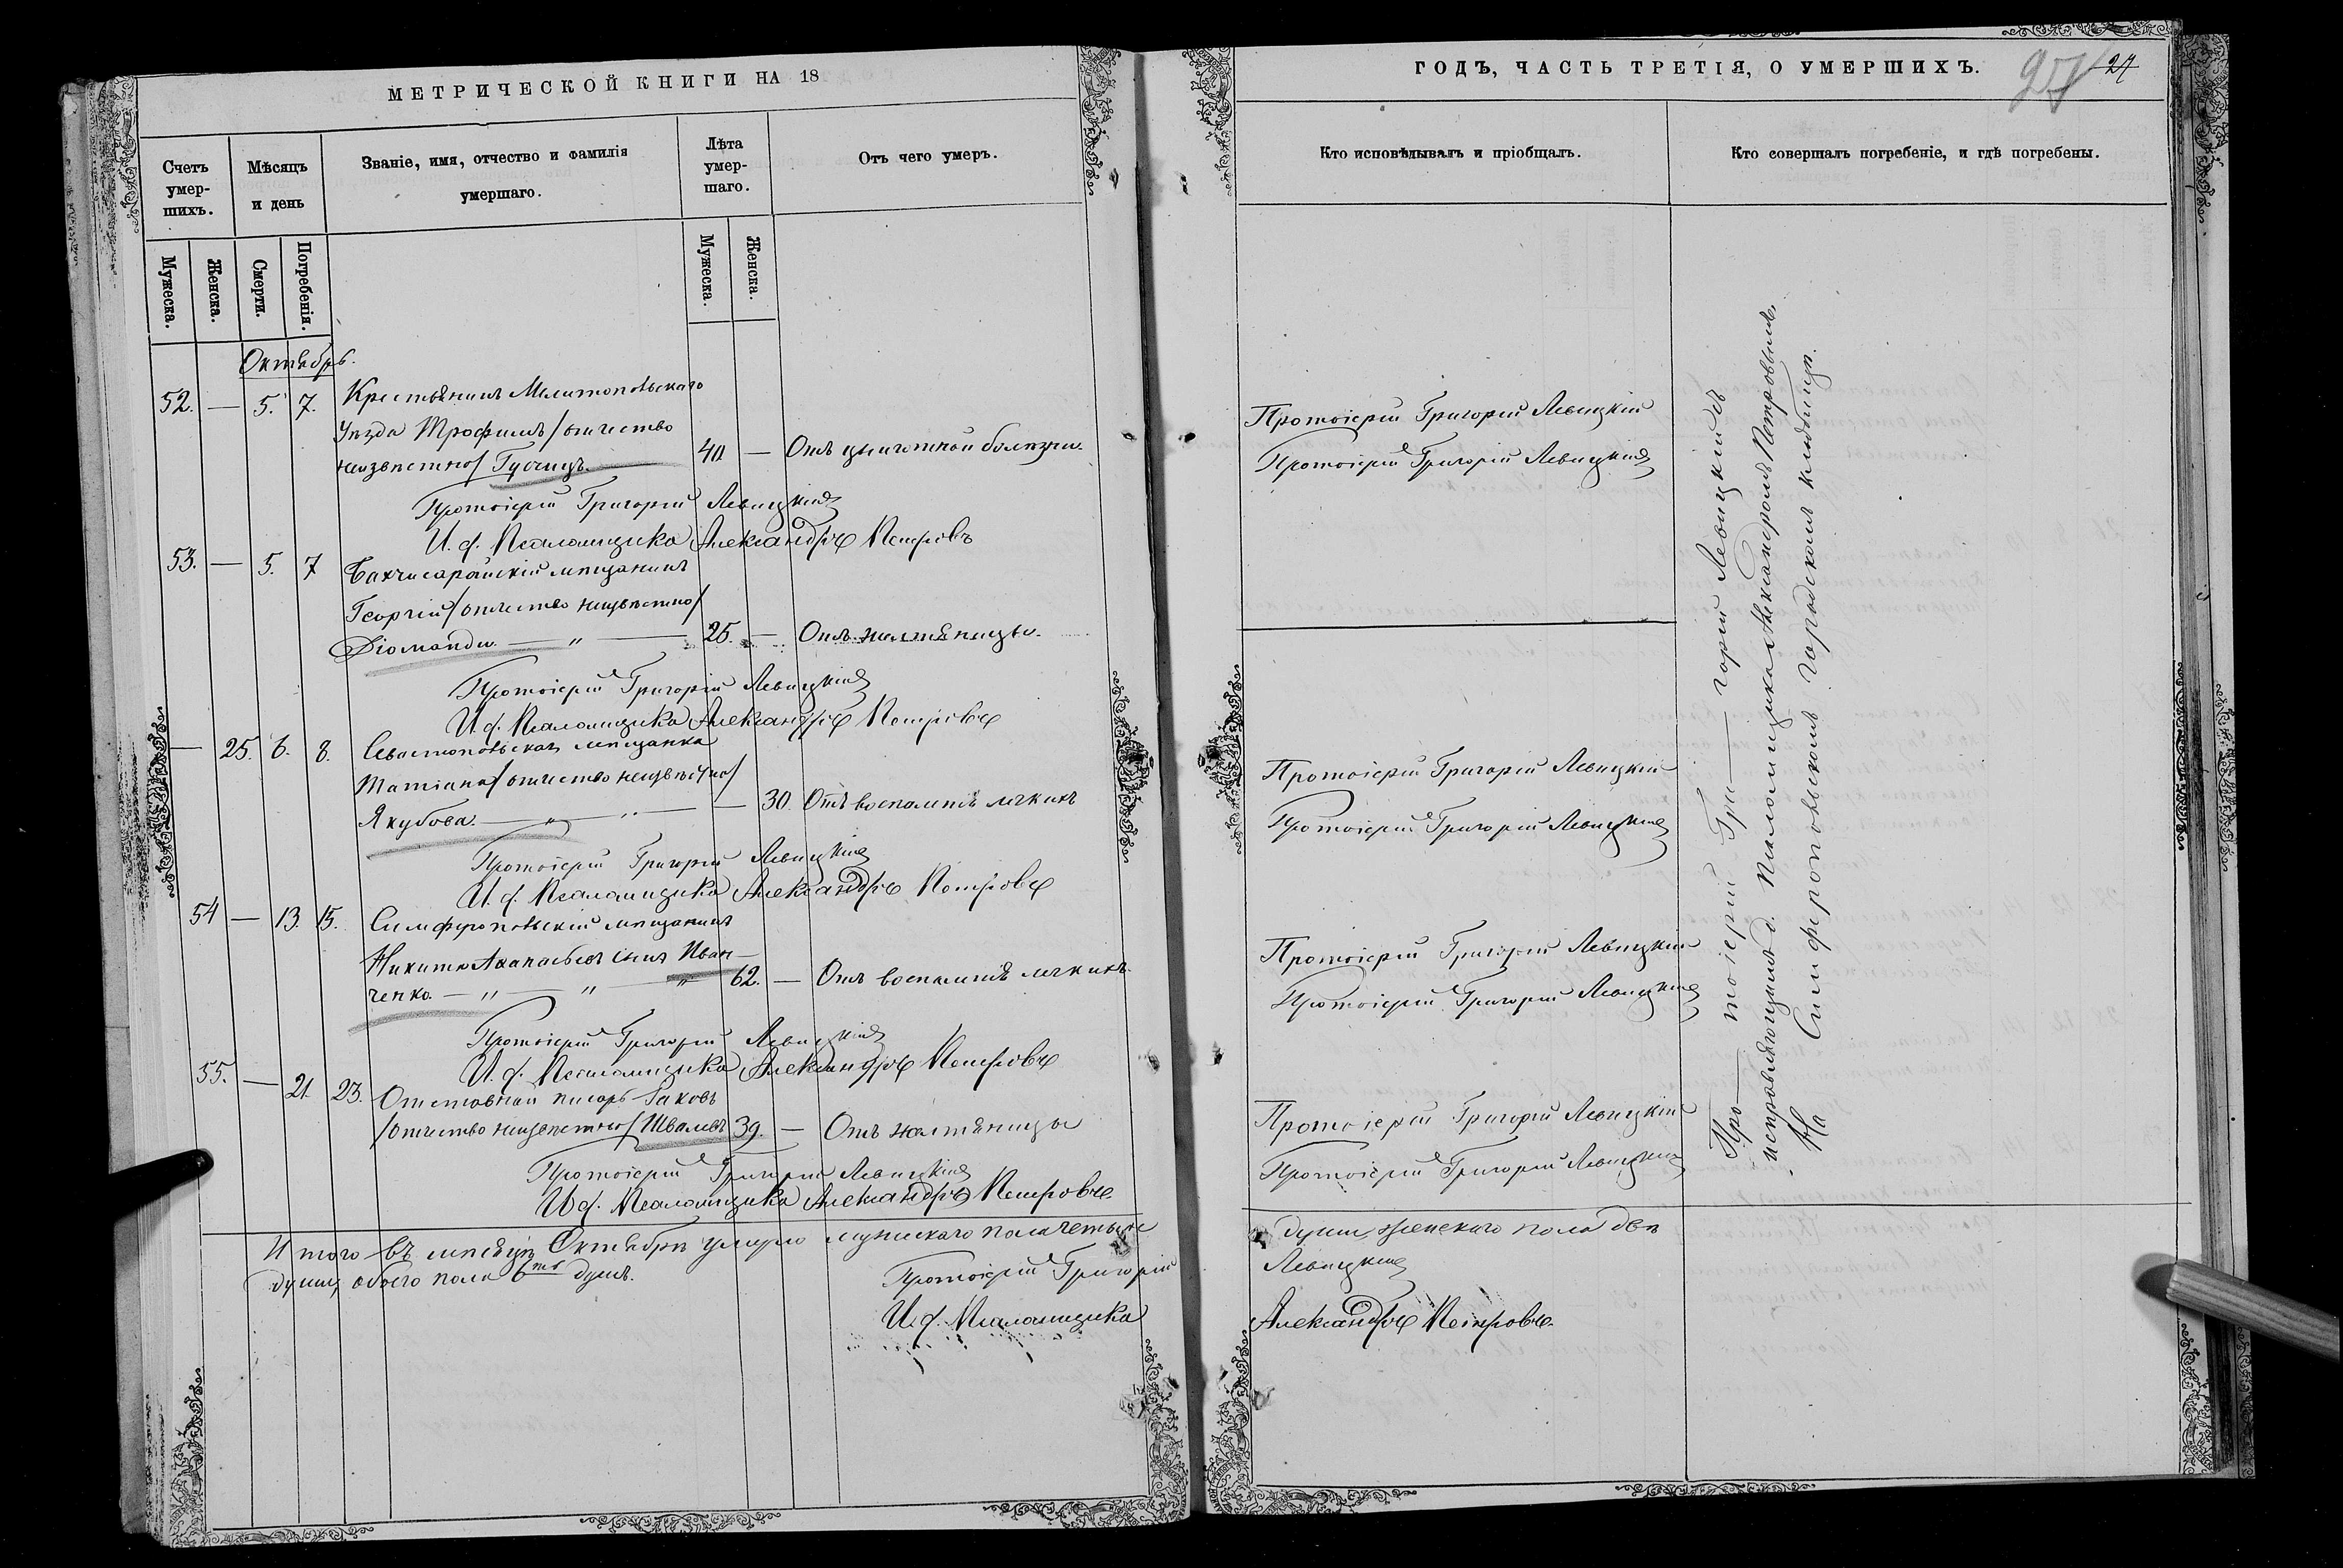 МЕТРИЧЕСКОЙ КНИГИ НА 18
Счетъ умер-шихъ.
Мѣсяцъ и день
Званіе, имя, отчество и фамилія умершаго.
Лѣта умер-шаго.
Отъ чего умеръ.
Мужеска.
Женска.
Смерти.
Погребенія.
Мужеска.
Женска.
Октябрь.
52. — 5. 7. Крестьянинъ Мелитопольскаго
Уѣзда Трофимъ /отчество
неизвѣстно/ Гусчицъ. — 40 — Отъ цынготной болѣзни.
Протоіерей Григорій Левицкій
И. д. Псаломщика Александръ Петровъ
53. — 5. 7 Бахчисарайскій мѣщанинъ
Георгій /отчество неизвѣстно/
Діоманди. — " — 25. — Отъ желтяницы.
Протоіерей Григорій Левицкій
И. д. Псаломщика Александръ Петровъ
— 25. 6. 8. Севастопольская мѣщанка
Татіана /отчество неизвѣстно/
Якубова. — " — " — — 30. Отъ воспаленія легкихъ
Протоіерей Григорій Левицкій
И. д. Псаломщика Александръ Петровъ
54 — 13. 15. Симферопольскій мѣщанинъ
Никита Аѳанасьевъ сынъ Иван-
ченко. — " — " — " 62. — Отъ воспаленія легкихъ.
Протоіерей Григорій Левицкій
И. д. Псаломщика Александръ Петровъ
55. — 21. 23. Отставной писарь Іаковъ
/отчество неизвѣстно/ Швалевъ 39. — Отъ желтяницы
Протоіерей Григорій Левицкій
И. д. Псаломщика Александръ Петровъ
Итого въ мѣсяцѣ Октябрѣ умерло мужскаго пола четыре
души, обоего пола 6ть душъ.
Протоіерей Григорій
И. д. Псаломщика
ГОДЪ, ЧАСТЬ ТРЕТІЯ, О УМЕРШИХЪ.
27
Кто исповѣдывалъ и пріобщалъ.
Кто совершалъ погребеніе, и гдѣ погребены.
Протоіерей Григорій Левицкій
Протоіерей Григорій Левицкій
Протоіерей Григорій Левицкій
Протоіерей Григорій Левицкій
Протоіерей Григорій Левицкій
Протоіерей Григорій Левицкій
Протоіерей Григорій Левицкій
Протоіерей Григорій Левицкій
Про — тоіерей Гри — горій Левицкій съ
исправляющимъ д. Псаломщика Александромъ Петровымъ,
На Симферопольскомъ городскомъ кладбищѣ.
души, женскаго пола двѣ
Левицкій
Александръ Петровъ.